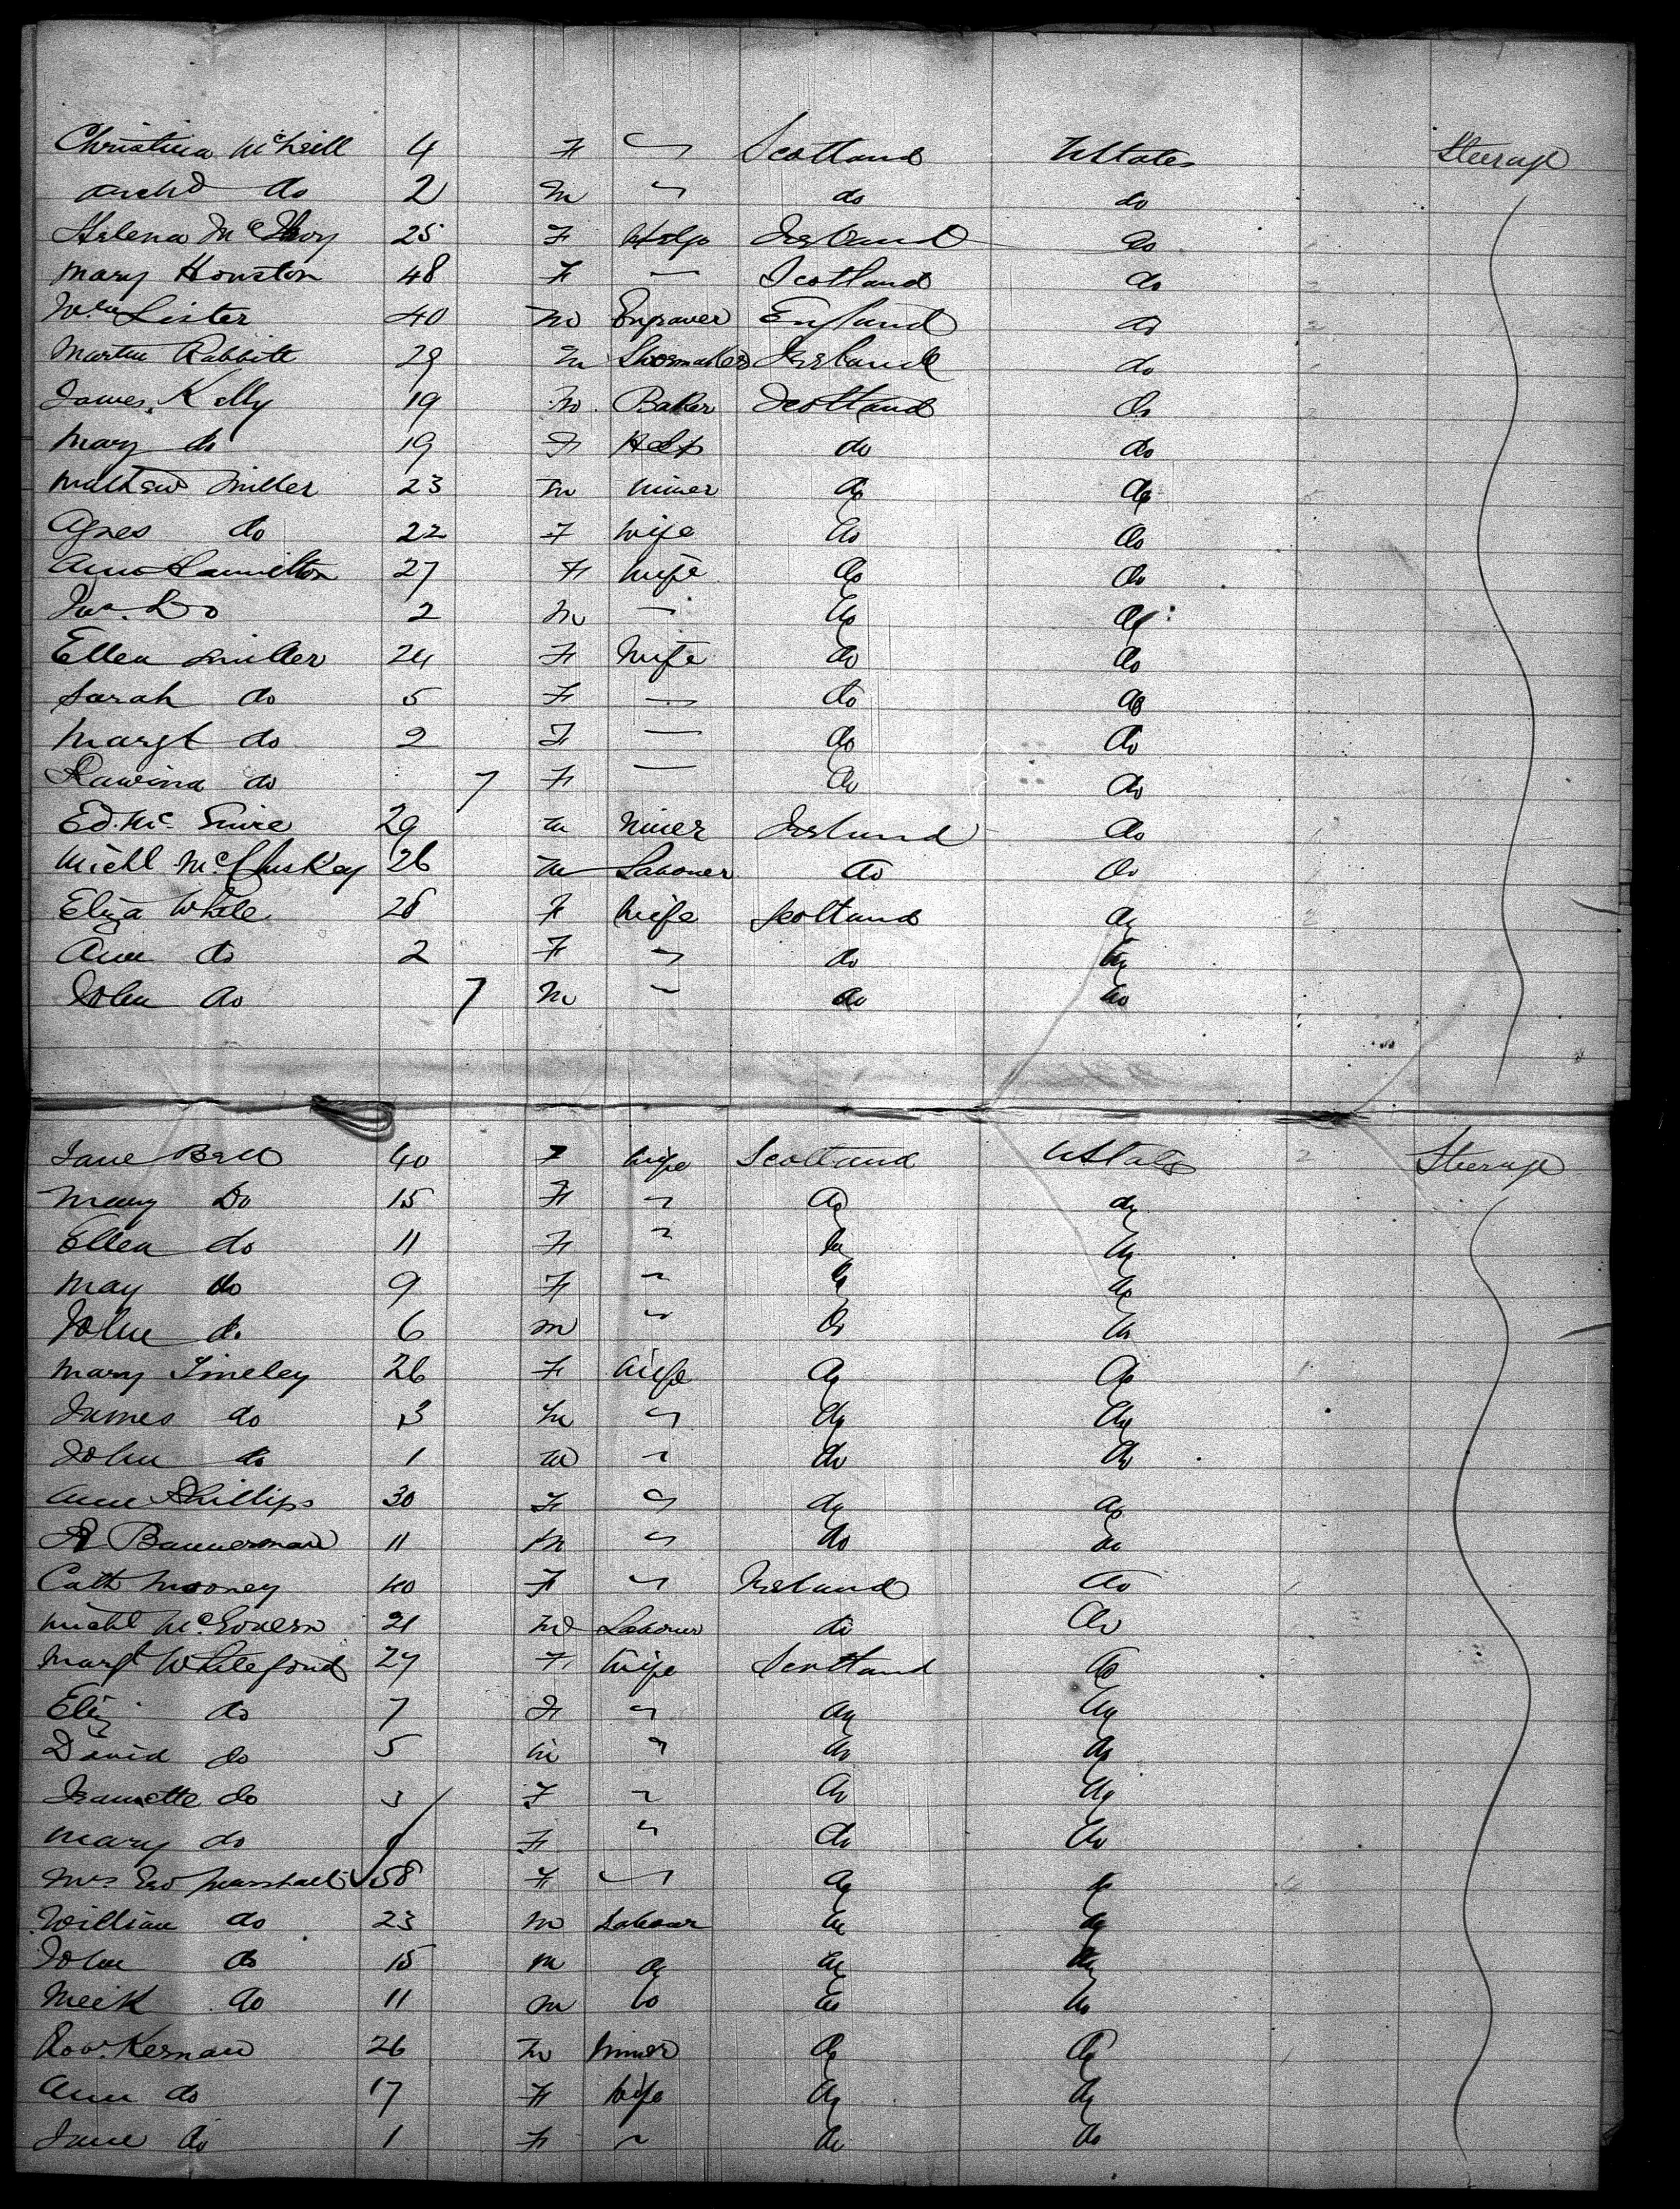 Christina McNeill 4 F " Scotland UStates Steerage
Archd do 2 M " do do
Helena McIlroy 25 F Help Ireland do
Mary Houston 48 F — Scotland do
Wm Lister 40 M Engraver England do
Martin Rabbitt 29 M Shoemaker Ireland do
James Kelly 19 M Baker Scotland do
Mary do 19 F Help do do
Mathew Miller 23 M Miner do do
Agnes do 22 F Wife do do
Ann Hamilton 27 F Wife do do
Jas. Do 2 M — do do
Ellen Miller 24 F Wife do do
Sarah do 5 F — do do
Margt do 2 F — do do
do 7 F — do do
Ed. Mc 29 M Miner Ireland do
Michl McCluskey 26 M Labourer do do
Eliza White 26 F Wife Scotland do
Ann do 2 F " do do
John do 7 M " do do
Jane Bell 40 F Wife Scotland UStates Steerage
Mary Do 15 F " do do
Ellen do 11 F " do do
May do 9 F " do do
John do 6 M " do do
Mary 26 F Wife do do
James do 3 M " do do
John do 1 M " do do
Ann Phillips 30 F " do do
A Bannerman 11 M " do do
Cath Mooney 40 F " Ireland do
Michl McGovern 21 M Labourer do do
Margt Whiteford 27 F Wife Scotland do
Eliz do 7 F " do do
David do 5 M " do do
do 3 F " do do
Mary do F " do do
Mrs Marshall 58 F " do do
William do 23 M Labour do do
John do 15 M do do do
Meik do 11 M do do do
Kernan 26 M Miner do do
Ann do 17 F Wife do do
Jane do 1 F " do do